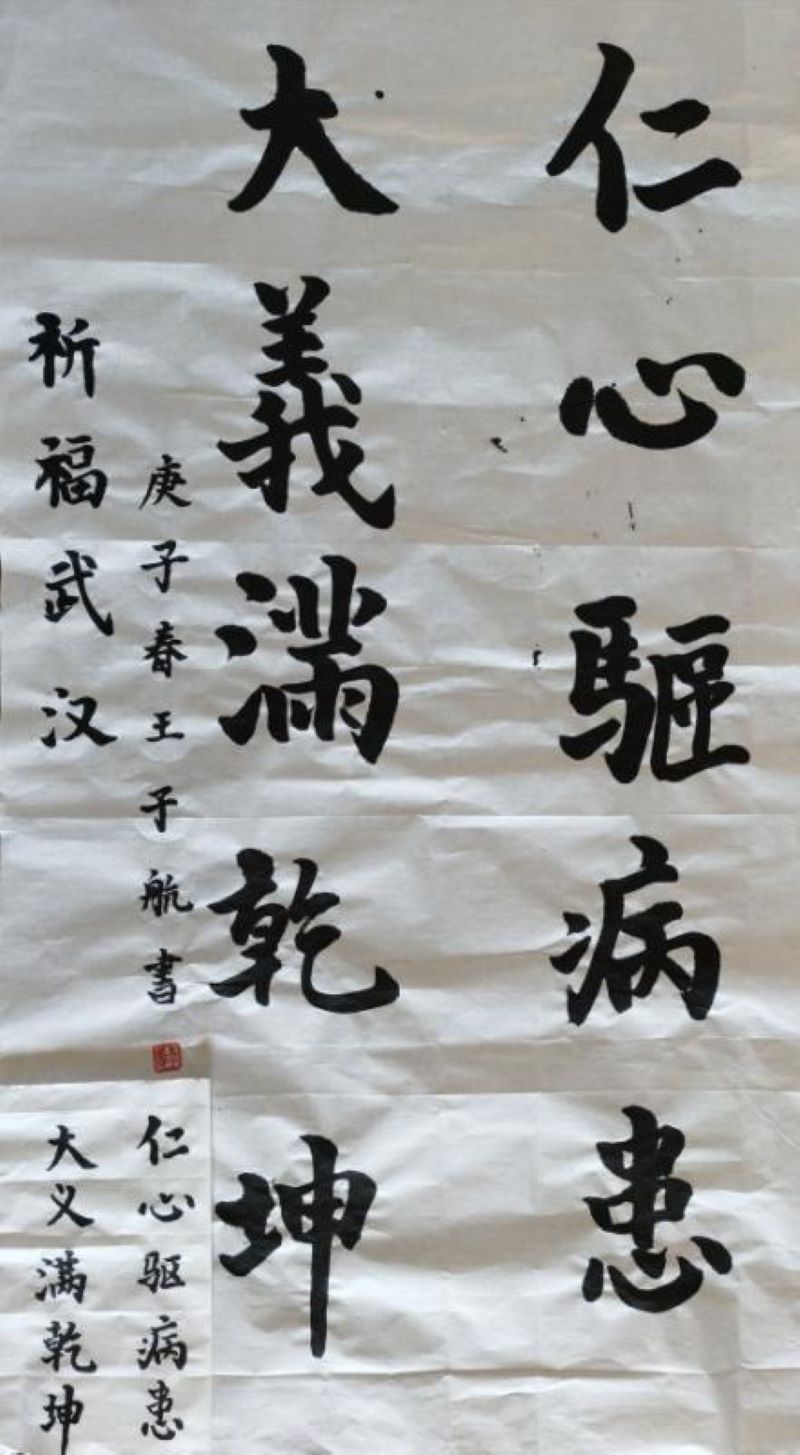 仁心驱病患
大義满乾坤
庚子春王子航書
祈福武汉
仁心驱病患
大义满乾坤